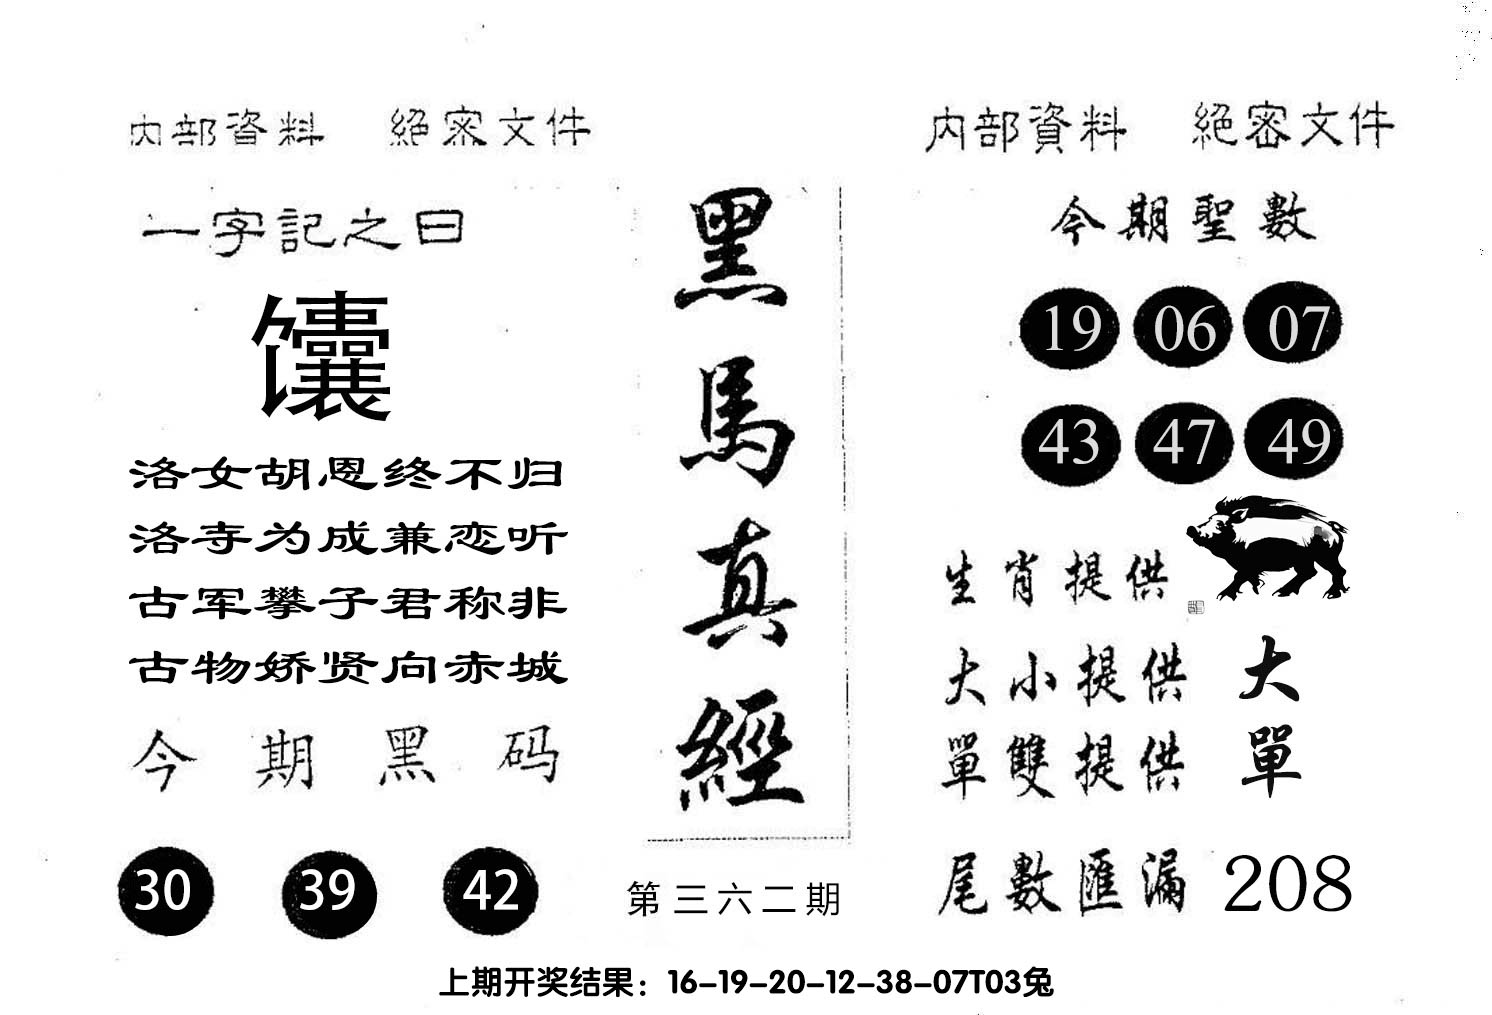 内部資料 絕密文件
一字記之曰
馕
洛女胡恩终不归
洛寺为成兼恋听
古军攀子君称非
古物娇贤向赤城
今期黑码
30 39 42
黑馬真經
第三六二期
内部資料 絕密文件
今期聖數
19 06 07
43 47 49
生肖提供
大小提供 大
單雙提供 單
尾數匯漏 208
上期开奖结果：16-19-20-12-38-07T03兔